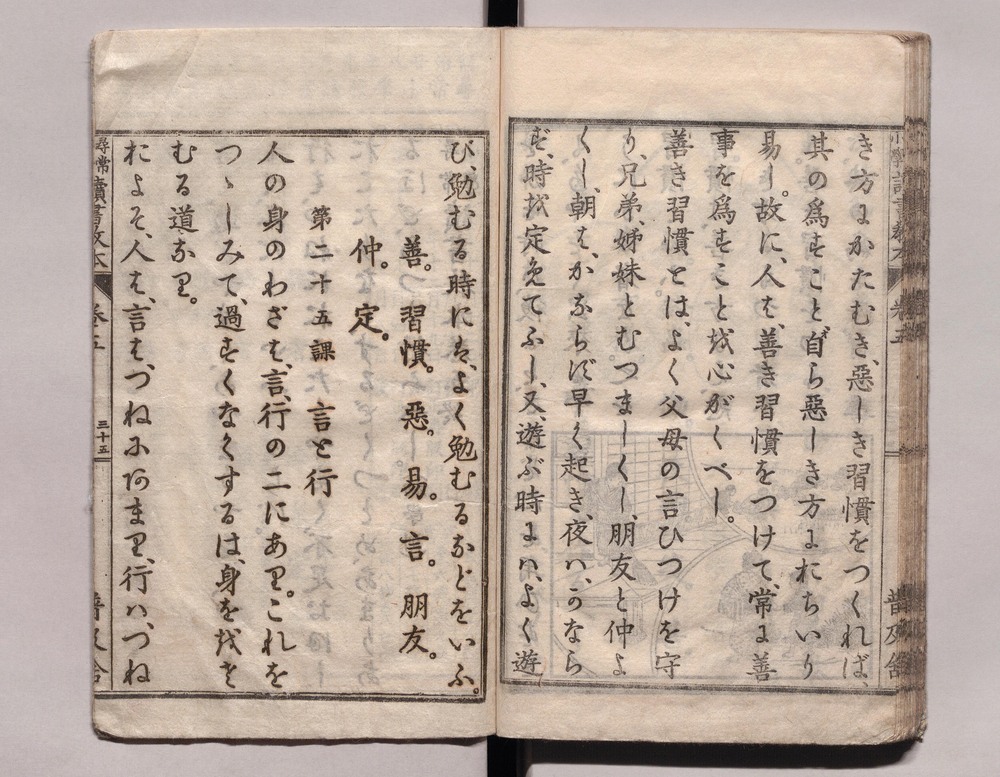 き方にかたむき、惡しき習慣をつくれば、
其の爲すこと自ら惡しき方におちいり
易し。故に、人は、善き習慣をつけて、常に善
事を爲すことを心がくべし。
善き習慣とは、よく父母の言ひつけを守
り、兄弟、姉妹とむつましくし、朋友と仲よ
くし、朝は、かならず早く起き、夜ハ、かなら
ず、時を定めてふし、又、遊ぶ時にハ、よく遊
び、勉むる時には、よく勉むるなどをいふ。
善。習慣。惡。易。言。朋友。
仲。定。
第二十五課 言と行
人の身のわざは、言、行の二にあり。これを
つゝしみて、過すくなくするは、身ををさ
むる道なり。
およそ、人は、言は、つねにあまり、行ハ、つね
尋常讀書教本 卷五 三十五 普及舍